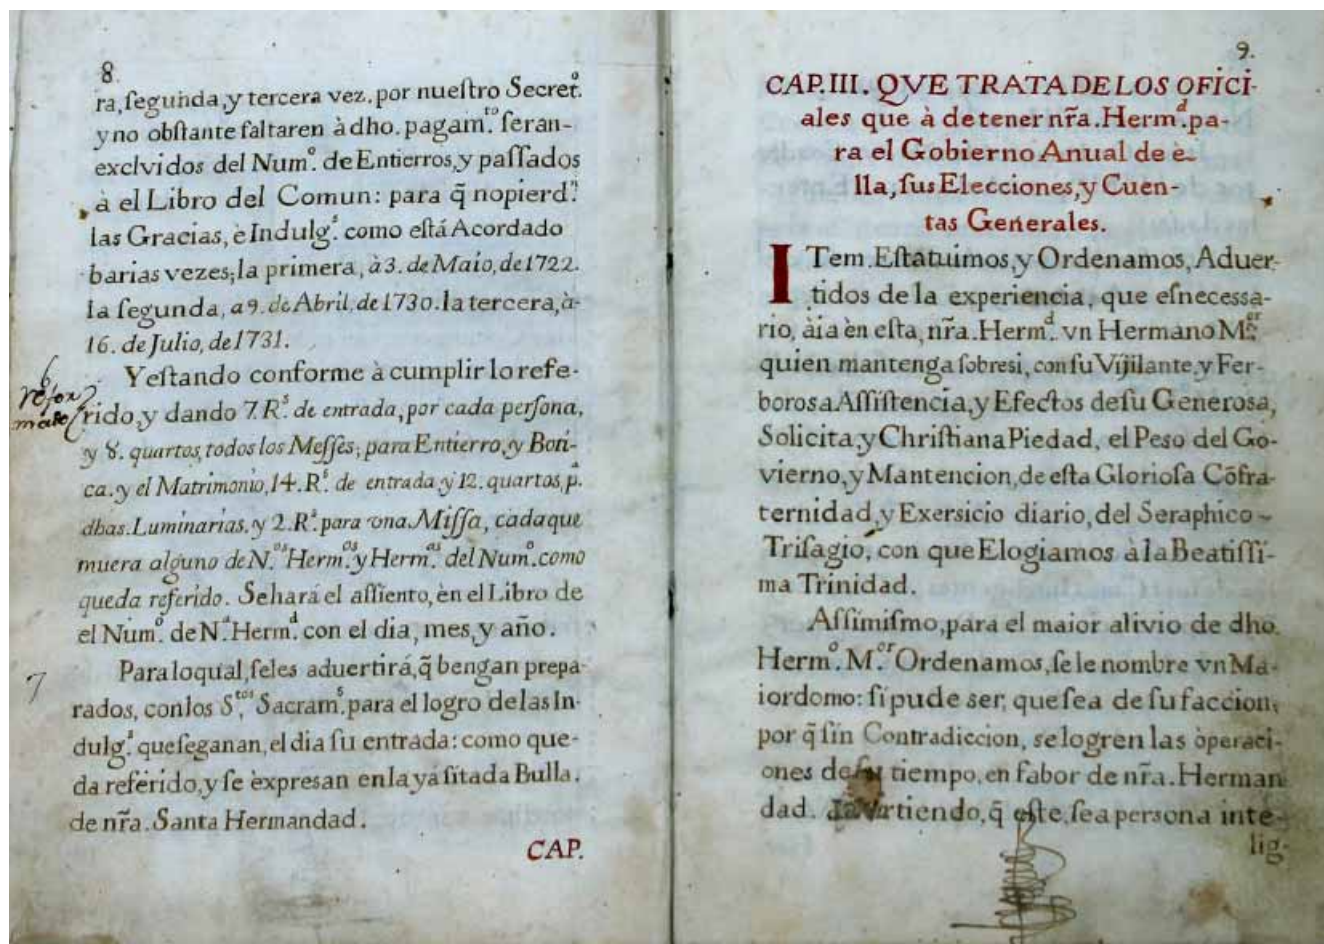 8.
ra, ſegunda, y tercera vez, por nueſtro Secret.º
y no obſtante faltaren à dho. pagam.to ſeran-
exclvidos del Num.º de Entierros, y paſſados
à el Libro del Comun: para q̃ nopierd.n
las Gracias, è Indulg.s como eſtá Acordado
barias vezes; la primera, à 3. de Maio, de 1722.
la ſegunda, a 9. de Abril, de 1730. la tercera, à-
16. de Julio, de 1731.
6
refor
mado
Y eſtando conforme à cumplir lo refe-
rido, y dando 7. R.s de entrada, por cada perſona,
y 8. quartos, todos los Meſſes; para Entierro, y Boti-
ca. y el Matrimonio, 14. R.s de entrada y 12. quartos, p.a
dhas. Luminarias. y 2. R.s para vna Miſſa, cada que
muera alguno de N.os Herm.os y Herm.as del Num.º como
queda referido. Se hará el aſſiento, èn el Libro de
el Num.º de N.a Herm.d con el dia, mes, y año.
7
Para loqual, ſeles aduertirá, q̃ bengan prepa-
rados, con los S.tos Sacram.s para el logro de las In-
dulg.s que ſe ganan, el dia ſu entrada: como que-
da referido, y ſe èxpresan en la yá ſitada Bulla.
de nr̃a. Santa Hermandad.
CAP.
9.
CAP. III. QVE TRATA DE LOS OFICI-
ales que à de tener nr̃a. Herm.d pa-
ra el Gobierno Anual de è-
lla, ſus Elecciones, y Cuen-
tas Generales.
ITem. Eſtatuimos, y Ordenamos, Aduer-
tidos de la experiencia, que eſneceſsa-
rio, àia èn eſta, nr̃a. Herm.d vn Hermano M.or
quien mantenga ſobresi, con ſu Vijilante, y Fer-
borosa Aſſiſtencia, y Efectos de ſu Generosa,
Solicita, y Chriſtiana Piedad, el Peso del Go-
vierno, y Mantencion, de eſta Glorioſa Cõfra-
ternidad, y Exersicio diario, del Seraphico-
Triſagio, con que Elogiamos à la Beatiſſi-
ma Trinidad.
Aſſimiſmo, para el maior alivio de dho.
Herm.º M.or Ordenamos, ſe le nombre vn Ma-
iordomo: ſi pude ser, que ſea de ſu faccion,
por q̃ ſin Contradiccion, se logren las òperaci-
ones de ſu tiempo, en fabor de nr̃a. Herman
dad. Advirtiendo, q̃ eſte, ſea persona inte-
lig-